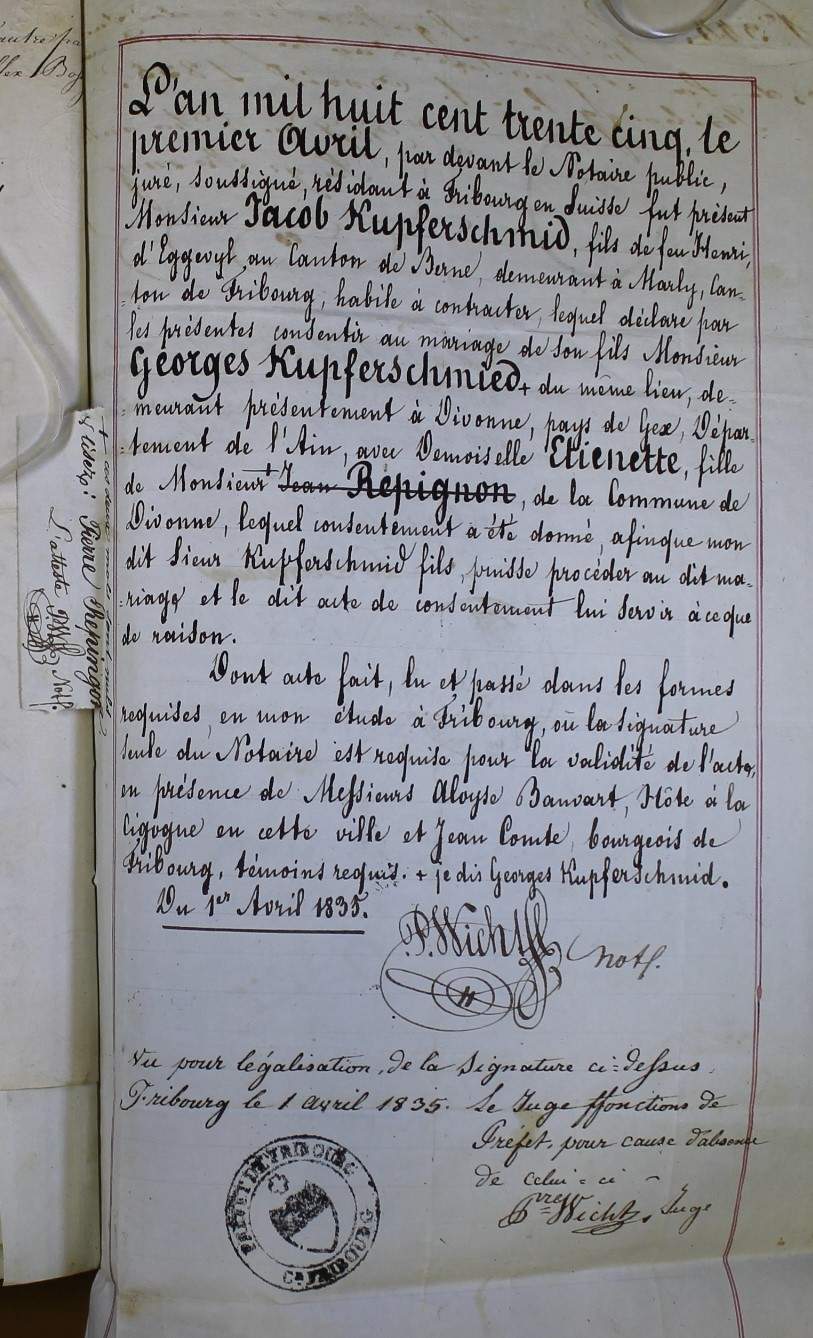 L'an mil huit cent trente cinq, le
premier Avril, par devant le Notaire public,
juré, soussigné, résidant à Fribourg en Suisse fut présent
Monsieur Jacob Kupferschmid, fils de feu Henri,
d'Eggevyl au Canton de Berne, demeurant à Marly, Can-
-ton de Fribourg, habile à contracter, lequel déclare par
les présentes consentir au mariage de son fils Monsieur
Georges Kupferschmied + du même lieu, de-
-meurant présentement à Divonne, pays de Gex, Dépar-
-tement de l'Ain, avec Demoiselle Etienette, fille
de Monsieur + Jean Répignon, de la Commune de
Divonne, lequel consentement a été donné, afinque mon
dit Sieur Kupferschmid fils, puisse procéder au dit ma-
-riage et le dit acte de consentement lui servir à ce que
de raison.
Dont acte fait, lu et passé dans les formes
requises, en mon étude à Fribourg, où la signature
seule du Notaire est requise pour la validité de l'acte,
en présence de Messieurs Aloyse Banvart, Hôte à la
Cigogne en cette ville et Jean Comte, bourgeois de
Fribourg, témoins requis. + je dis Georges Kupferschmid.
Du 1er Avril 1835.
P. Wicht Not.
Vu pour légalisation, de la signature ci-dessus.
Fribourg le 1 avril 1835. Le Juge ffonctions de
Préfet, pour cause d'absence
de celui-ci -
Wicht, Juge
+ ces deux mots sont nuls
& lisez: Pierre Répingon
L'atteste Not.
FRIBOURG